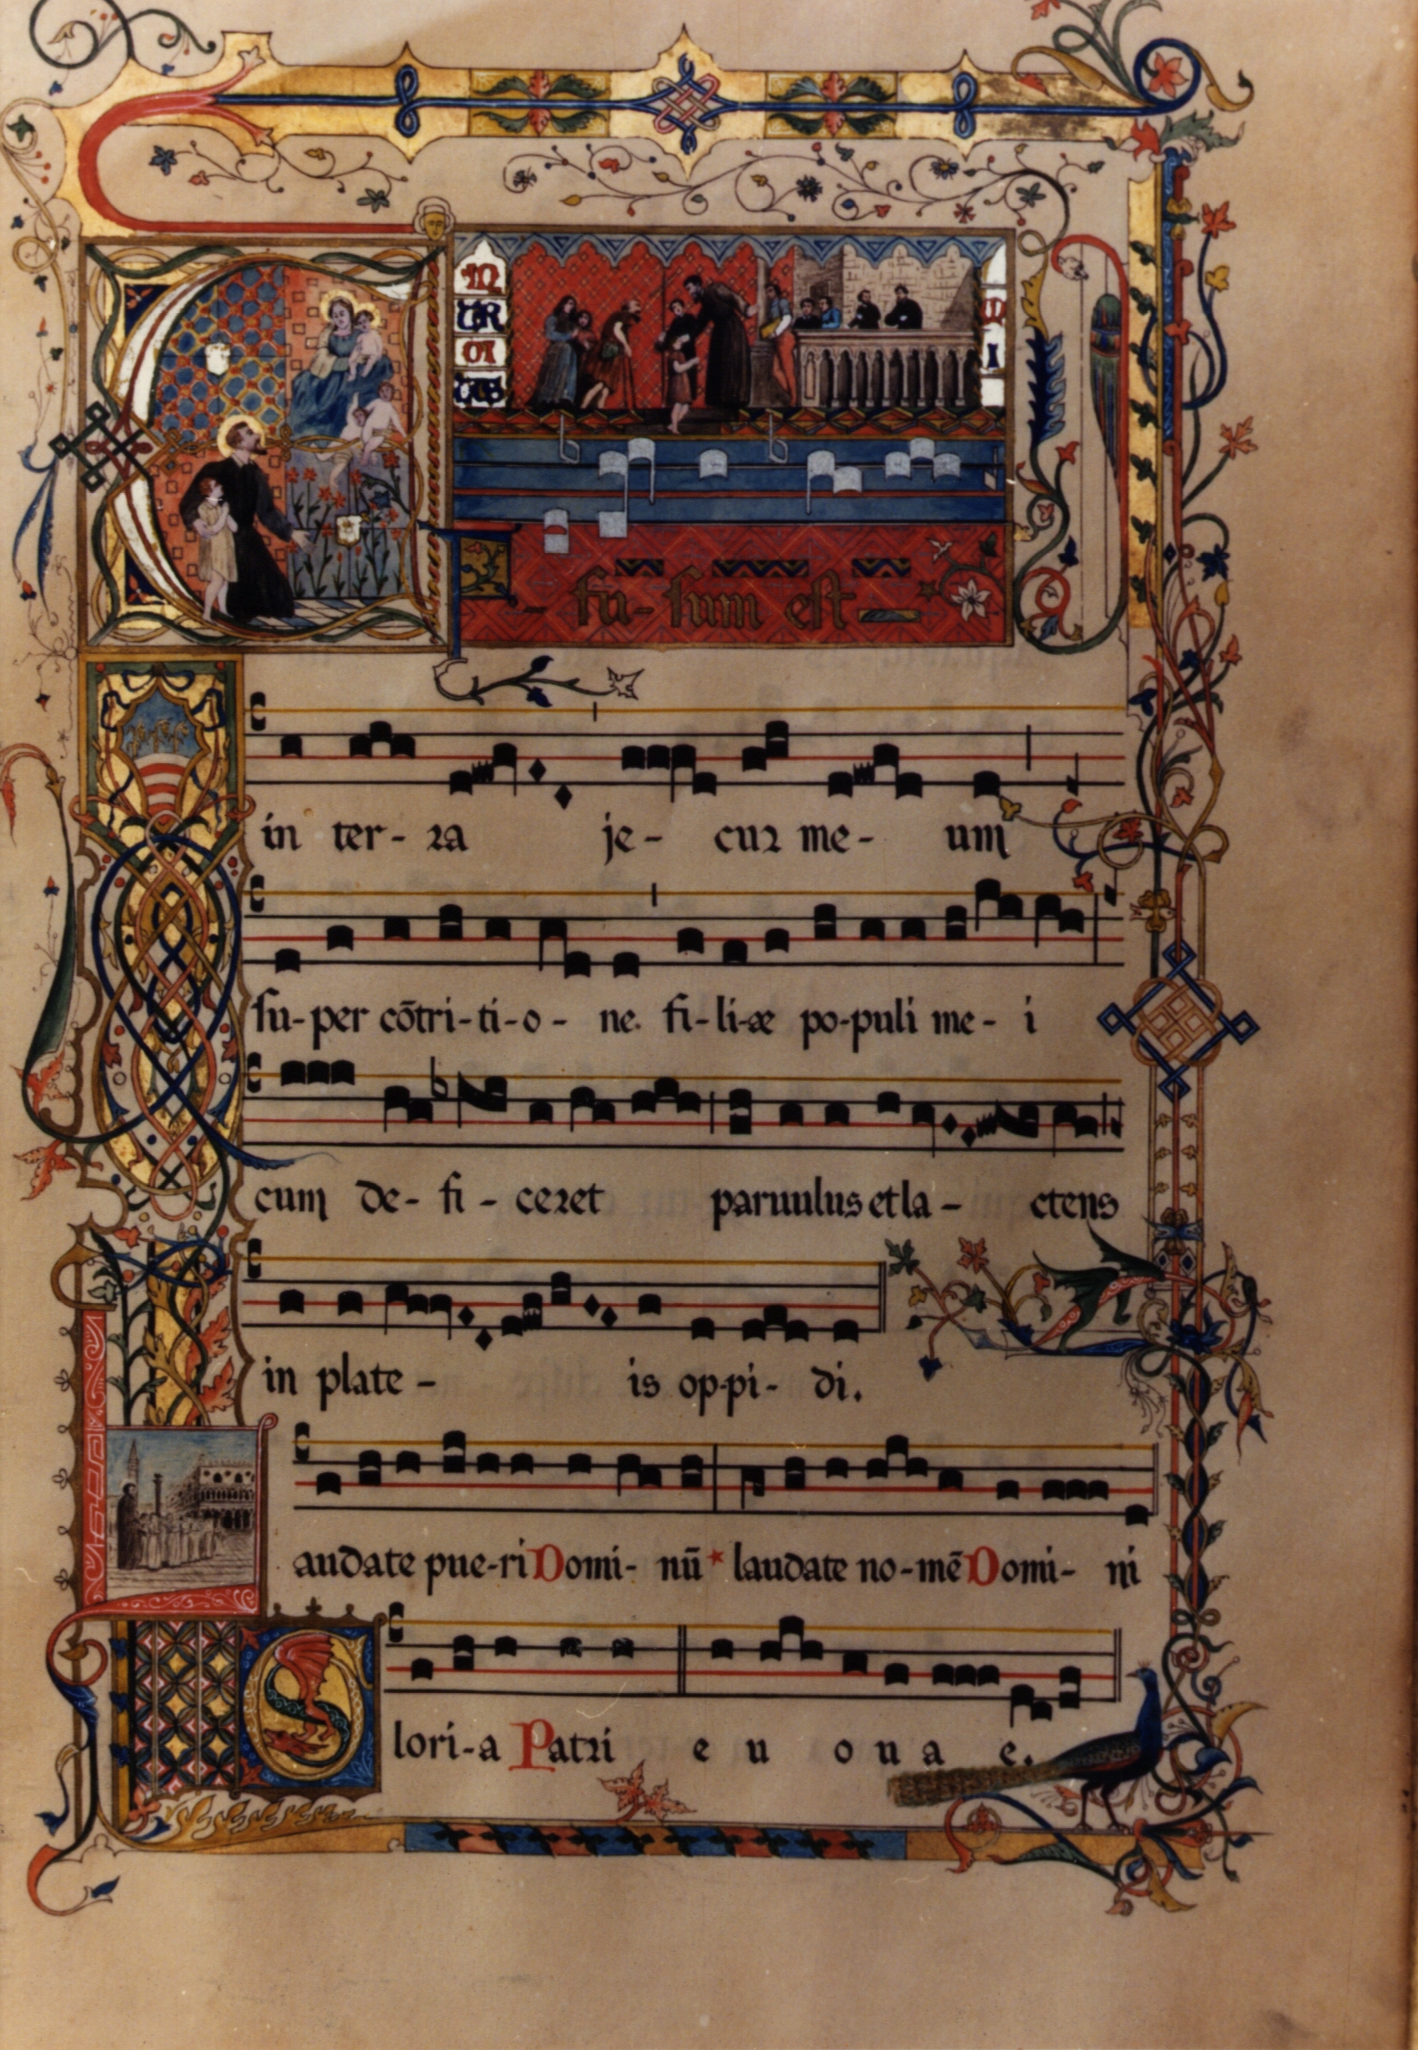 INTROITUS
VI
Ef-fu-sum est
in ter-ra je-cur me-um
su-per cōtri-ti-o-ne. fi-li-æ po-puli me-i
cum de-fi-ceret paruulus et la-ctens
in plate-is op-pi-di.
audate pue-ri Domi-nū * laudate no-mē Domi-ni
Glori-a Patri e u o u a e.